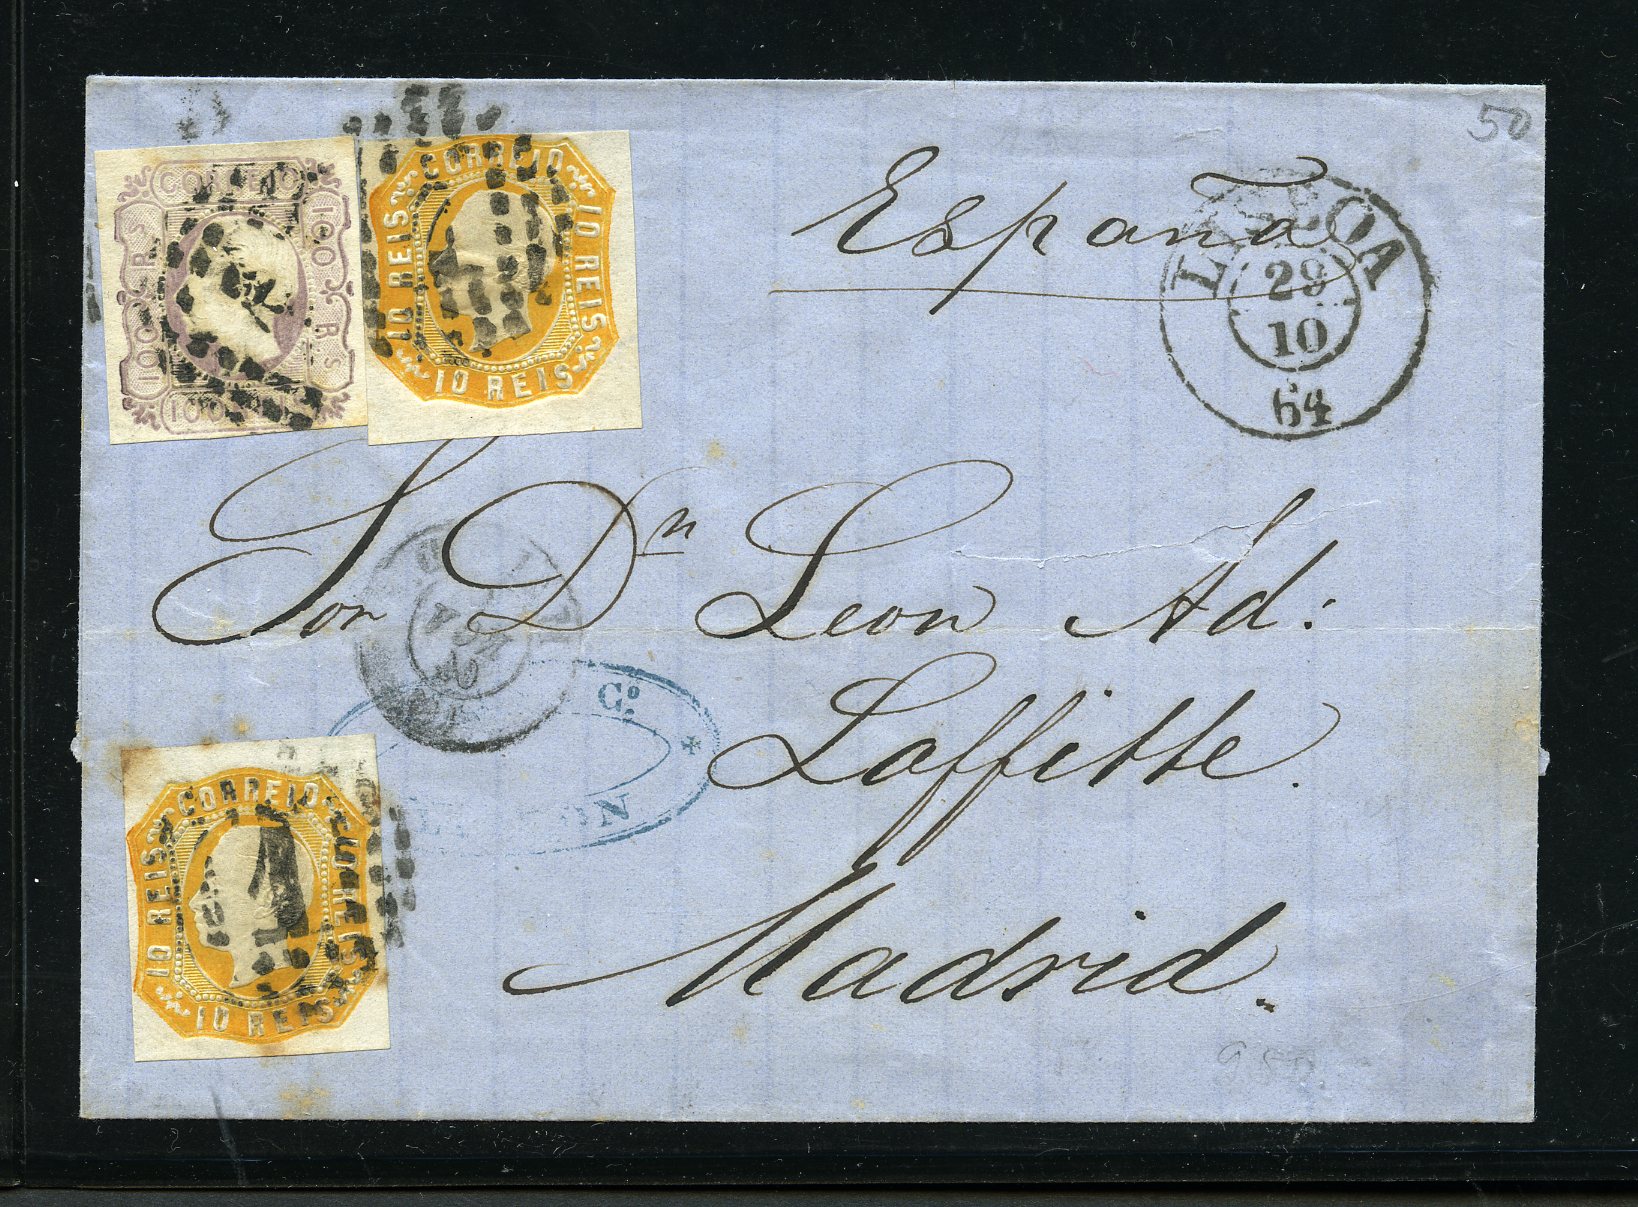 50
España
LISBOA
29
10
64
CORREIO
100 RS
100 RS
100 REIS
CORREIO
10 REIS
10 REIS
10 REIS
Sor Dn Leon Ad:
Laffitte.
Madrid.
Co.
CORREIO
10 REIS
10 REIS
10 REIS
1